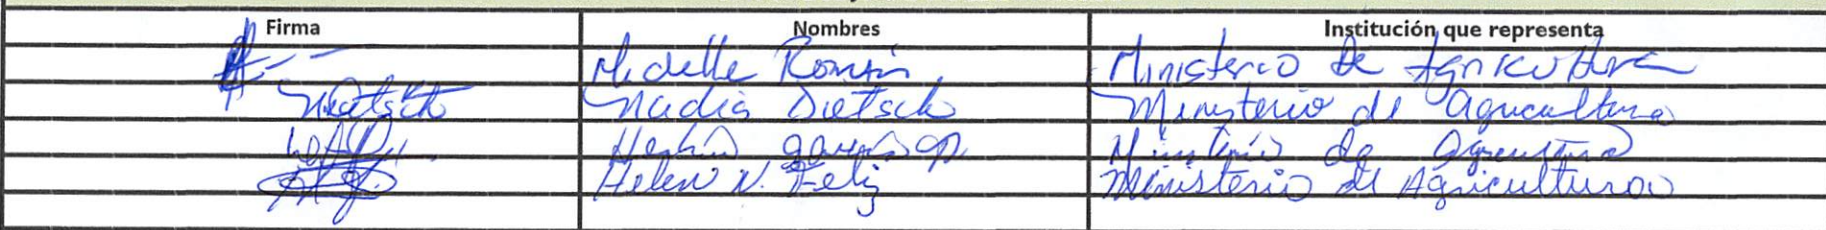 Firma Nombres Institución que representa
Michelle Román Ministerio de Agricultura
Nadia Dietsch Ministerio de Agricultura
García Ministerio de Agricultura
Helen N. Feliz Ministerio de Agricultura